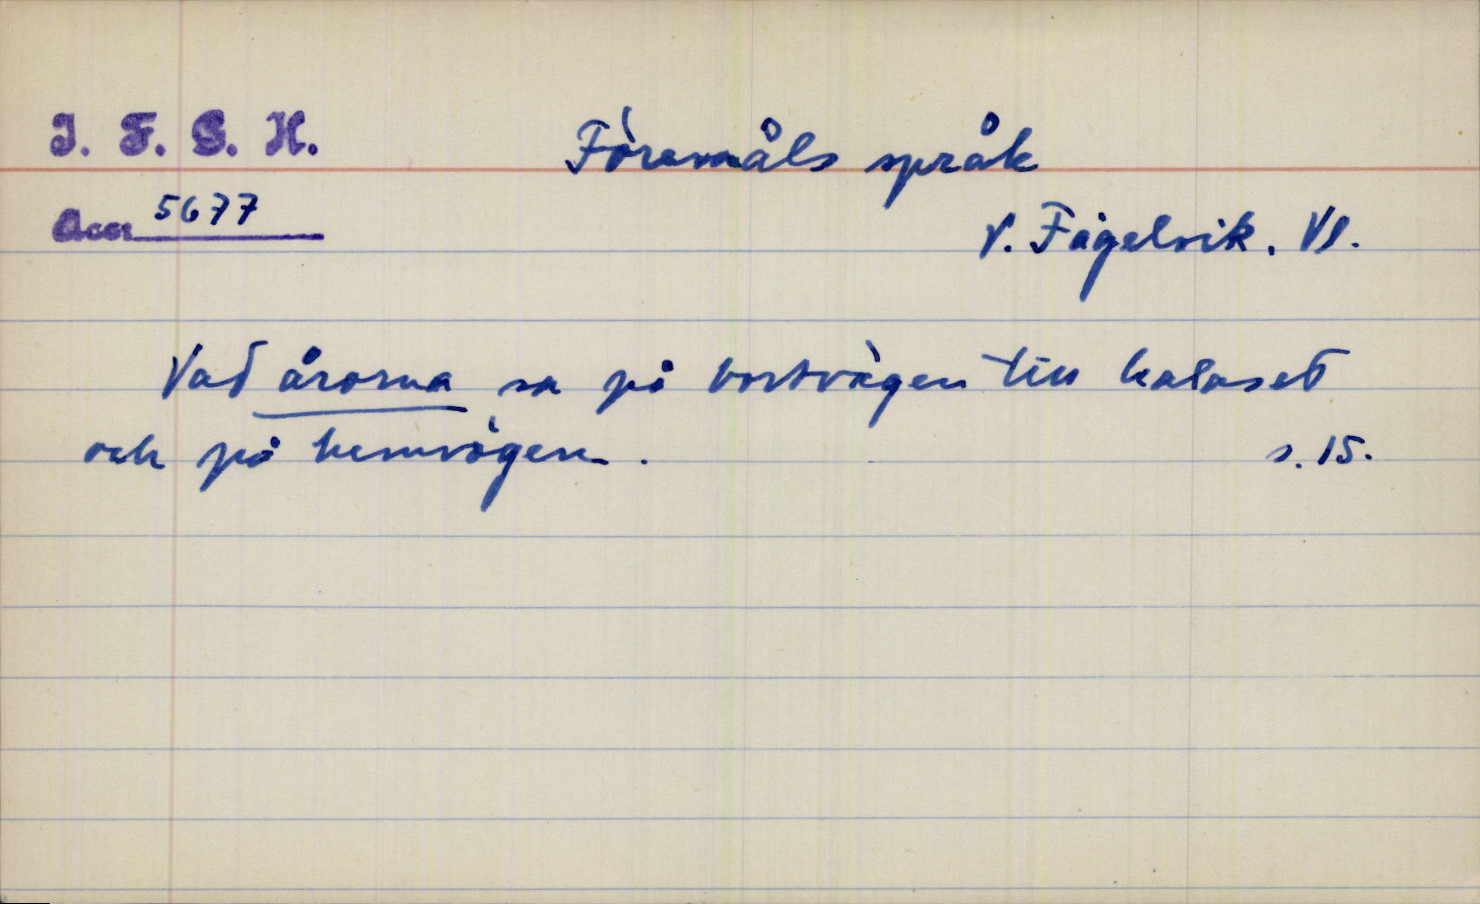 I. F. G. H.
Föremåls språk
Acc. 5677
V. Fågelvik. Vl.
Vad årorna sa på bortvägen till kalaset
och på hemvägen.
s. 15.